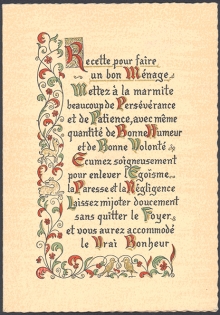 Recette pour faire
un bon Ménage
Mettez à la marmite
beaucoup de Persévérance
et de Patience, avec même
quantité de Bonne Humeur
et de Bonne Volonté
Ecumez soigneusement
pour enlever l'Egoïsme
la Paresse et la Négligence
Laissez mijoter doucement
sans quitter le Foyer
et vous aurez accommodé
le Vrai Bonheur